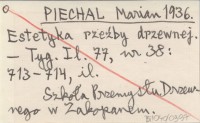 PIECHAL Marian 1936.
Estetyka rzeźby drzewnej.
- Tyg. Il. 77, nr 38:
713-714, il.
Szkoła Przemysłu Drzew
nego w Zakopanem.